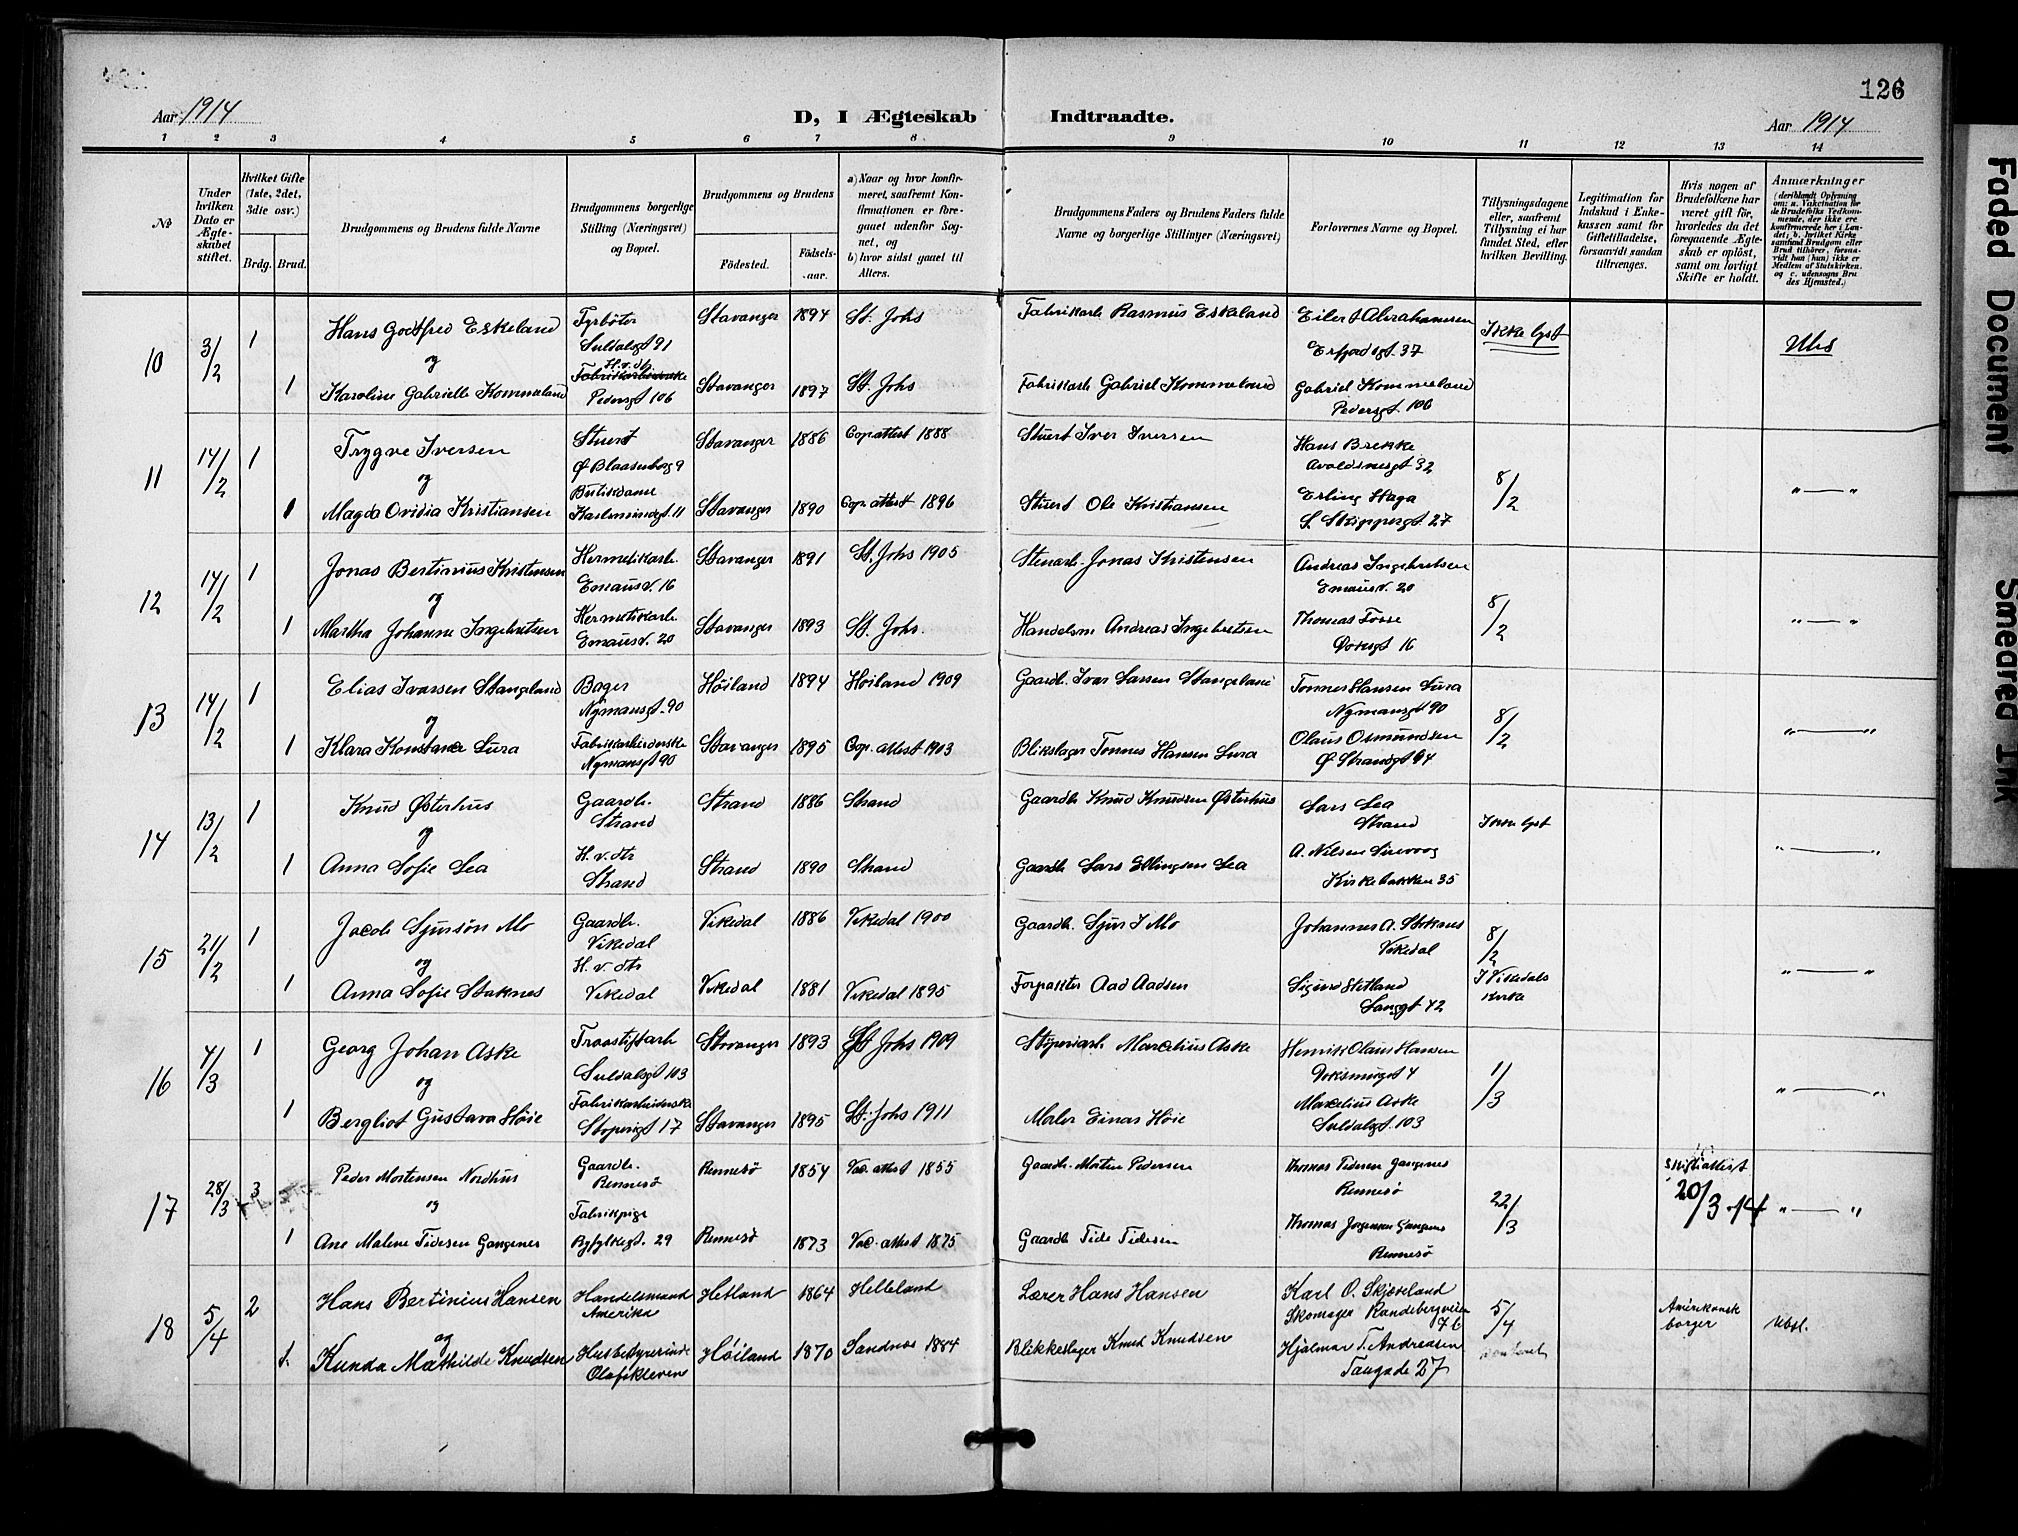 126
Aar 1914
D, I Ægteskab Indtraadte.
Aar 1914
1 2 3 4 5 6 7 8 9 10 11 12 13 14
№
Under hvilken Dato er Ægteskabet stiftet.
Hvilket Gifte (1ste, 2det, 3die osv.)
Brdg. Brud.
Brudgommens og Brudens fulde Navne
Brudgommens borgerlige Stilling (Næringsvei) og Bopæl.
Brudgommens og Brudens
Fødested.
Fødselsaar.
a) Naar og hvor konfirmeret, saafremt Konfirmationen er foregaaet udenfor Sognet, og
b) hvor sidst gaaet til Alters.
Brudgommens Faders og Brudens Faders fulde Navne og borgerlige Stillinger (Næringsvei)
Forlovernes Navne og Bopæl.
Tillysningsdagene eller, saafremt Tillysning ei har fundet Sted, efter hvilken Bevilling.
Legitimation for Indskud i Enkekassen samt for Giftetilladelse, forsaavidt saadan tiltrænges.
Hvis nogen af Brudefolkene har været gift før, hvorledes da det foregaaende Ægteskab er opløst, samt om lovligt Skifte er holdt.
Anmærkninger
(deriblandt Oplysning om: a. Vakcination for de Brudefolks Vedkommende, der ikke ere konfirmerede her i Landet, b. hvilket Kirkesamfund Brudgom eller Brud tilhører, forsaavidt han (hun) ikke er Medlem af Statskirken, og c. udensogns Brudes Hjemsted.)
10 3/2 1 Hans Godtfred Eskeland Fyrbøter Suldalsgt 91 Stavanger 1894 St. Johs Fabrikarb Rasmus Eskeland Eilert Abrahamsen Erfjordsgt. 37 Ikke lyst
og
1 Karoline Gabrielle Kommeland H. v. dtr Fabrikarbeiderske Pedersgt 106 Stavanger 1897 St. Johs Fabrikarb Gabriel Kommeland Gabriel Kommeland Pedersgt. 106
11 14/2 1 Trygve Iversen Stuert Ø Blaasenborg 9 Stavanger 1886 Cop. attest 1888 Stuert Iver Iversen Hans Brekke Avaldsnesgt 32 8/2 " — "
og
1 Magda Ovidia Kristiansen Butikdame Karlsminnegt 11 Stavanger 1890 Cop. attest 1896 Stuert Ole Kristiansen Erling Haga S. Skippergt 27
12 14/2 1 Jonas Bertinius Kristensen Hermetikarb. Emausv. 16 Stavanger 1891 St. Johs 1905 Stenarb. Jonas Kristensen Andreas Ingebretsen Emausv. 20 8/2 " — "
og
1 Martha Johanne Ingebretsen Hermetikarb. Emausv. 20 Stavanger 1893 St. Johs. Handelsm Andreas Ingebretsen Thomas Fosse Doksgt 16
13 14/2 1 Elias Ivarsen Stangeland Bager Nymansgt. 90 Høiland 1894 Høiland 1909 Gaardb. Ivar Larsen Stangeland Tønnes Hansen Lura Nymansgt 90 8/2 " — "
og
1 Klara Konstance Lura Fabrikarbeiderske Nymansgt 90 Stavanger 1895 Cop. attest 1903 Blikslager Tønnes Hansen Lura Olaus Osmundsen Ø Strandgt 94
14 13/2 1 Knud Østerhus Gaardb. Strand Strand 1886 Strand Gaardb Knud Knudsen Østerhus Lars Lea Strand Ikke lyst " — "
og
1 Anna Sofie Lea H. v. dtr Strand Strand 1890 Strand Gaardb Lars Ellingsen Lea A. Nilsen Sirevaag Kirkebakken 35
15 21/2 1 Jacob Sjursön Mo Gaardb. Vikedal Vikedal 1886 Vikedal 1900 Gaardb. Sjur I Mo Johannes A. Staknes Vikedal 8/2 I Vikedals Kirke " — "
og
1 Anna Sofie Staknes H. v. dtr Vikedal Vikedal 1881 Vikedal 1895 Forpagter Aad Aadsen Sigurd Hetland Langgt 42
16 4/3 1 Georg Johan Aske Suldalsgt 103 Stavanger 1893 St Johs 1909 Støperiarb Marcelius Aske Henrik Olaus Hansen Doksmuggt 4 1/3 " — "
og
1 Bergliot Gustava Høie Fabrikarbeiderske Støperigt 17 Stavanger 1895 St. Johs 1911 Maler Einar Høie Marcelius Aske Suldalsgt. 103
17 28/3 3 Peder Mortensen Nordhus Gaardb. Rennesø Rennesø 1854 Vac. attest 1855 Gaardb. Morten Pedersen Thomas Tidesen Gangenes Rennesø 22/3 Skifteattest 20/3 14 " — "
og
1 Ane Malene Tidesen Gangenes Fabrikpige Ryfylkegt. 29 Rennesø 1873 Vac. attest 1875 Gaardb Tide Tidesen Thomas Jørgensen Gangenes Rennesø
18 5/4 2 Hans Bertinius Hansen Handelsmand Amerika Hetland 1864 Helleland Lærer Hans Hansen Karl O. Skjæseland Skomager Randebergveien 76 5/4 Amerikansk borger
og
1. Kunda Mathilde Knudsen Husbestyrerinde Olafskleven Høiland 1870 Sandnes 1884 Blikkeslager Knud Knudsen Hjalmar T. Andreasen Taugade 27
Faded Document
Smeared Ink